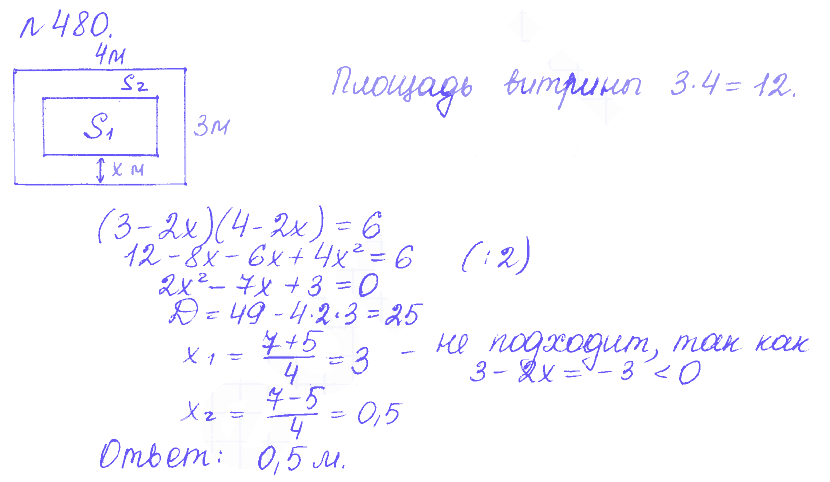 №480.
4м
S2
Площадь витрины 3·4=12.
S1
3м
х м
(3-2x)(4-2x)=6
12-8x-6x+4x²=6 (:2)
2x²-7x+3=0
D=49-4·2·3=25
x1=(7+5)/4=3 - не подходит, так как
3-2x=-3<0
x2=(7-5)/4=0,5
Ответ: 0,5 м.